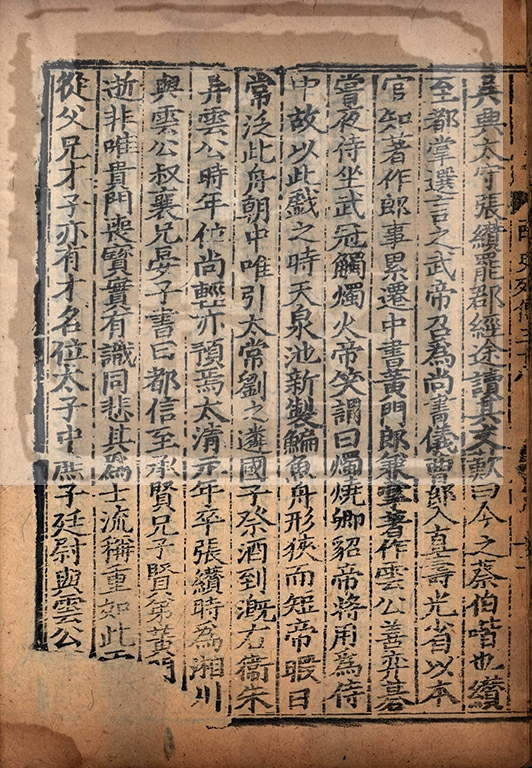 吳興太守張纘罷郡經途讀其文歎曰今之蔡伯喈也纘
至都掌選言之武帝召為尚書儀曹郎入直壽光省以本
官知著作郎事累遷中書黃門郎兼掌著作雲公善弈碁
嘗夜侍坐武冠觸燭火帝笑謂曰燭燒卿貂帝將用為侍
中故以此戲之時天泉池新製鯿魚舟形狹而短帝暇日
常泛此舟朝中唯引太常劉之遴國子祭酒到溉右衛朱
异雲公時年位尚輕亦預焉太清元年卒張纘時為湘州
與雲公叔襄兄晏子書曰都信至承賢兄子賢弟黃門
逝非唯貴門喪寶實有識同悲其為士流稱重如此
從父兄才子亦有才名位太子中庶子廷尉與雲公